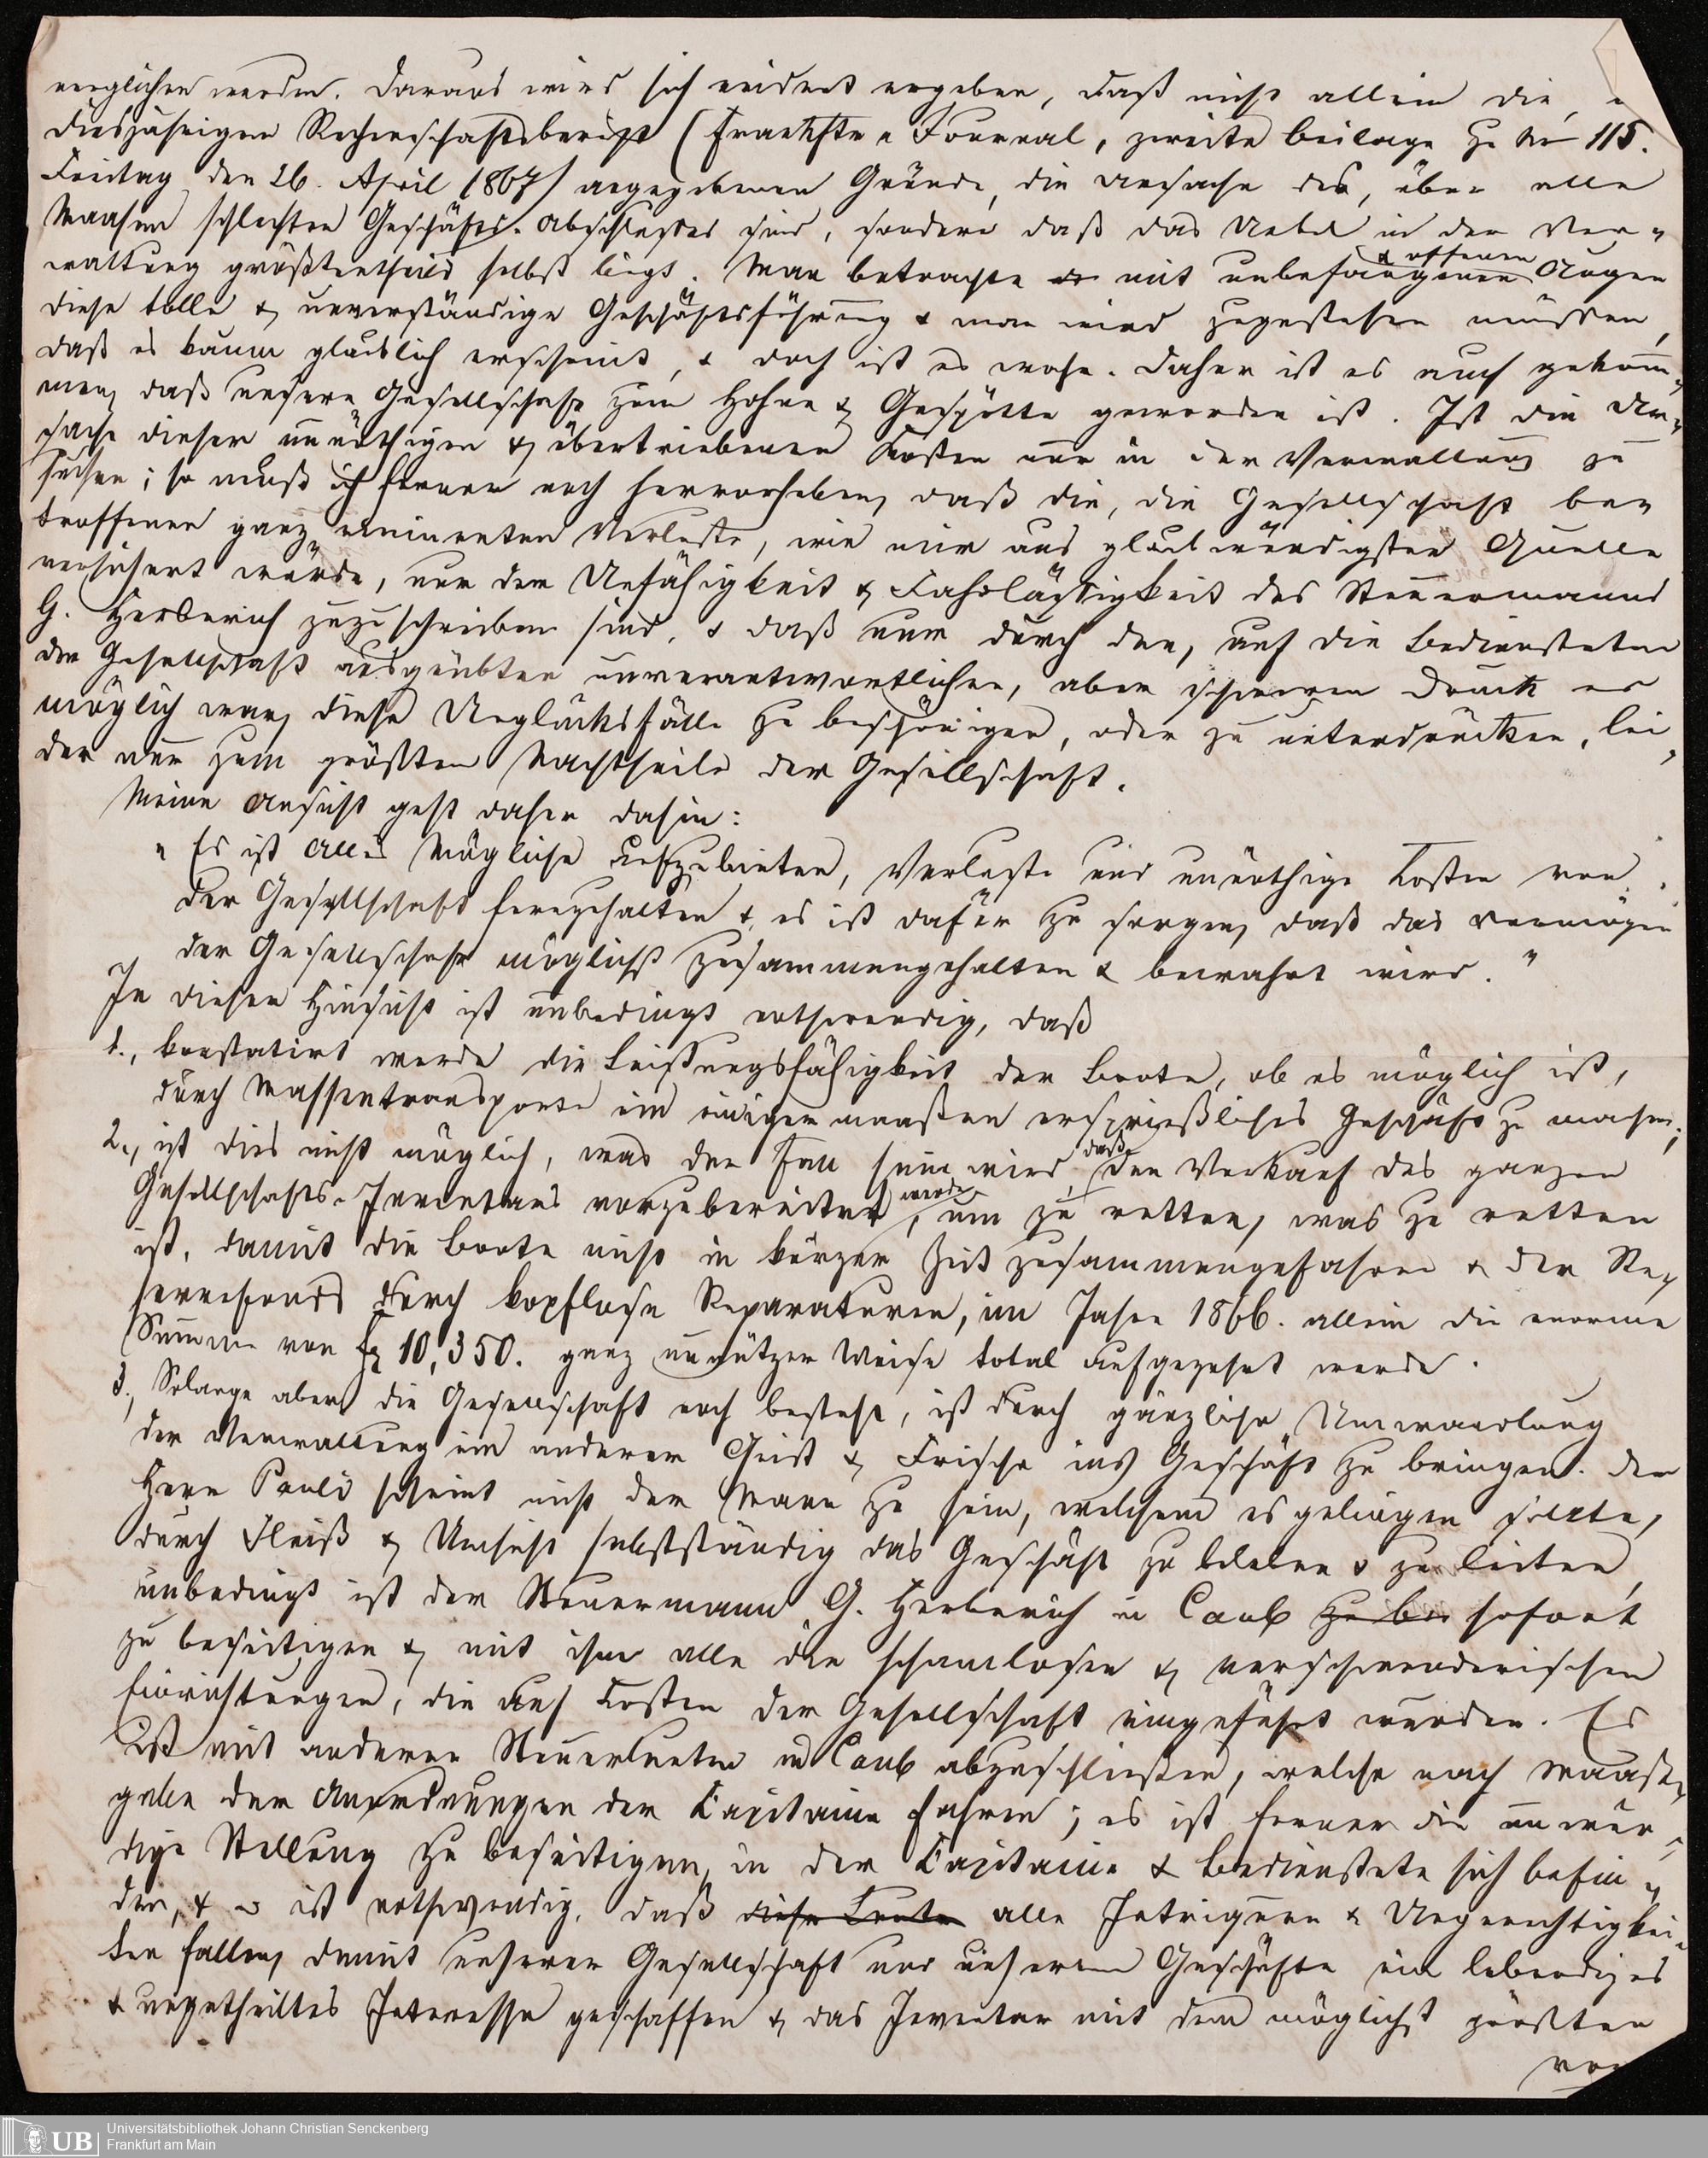 verglichen werden. Daraus wird sich evident ergeben, daß nicht allein die, 
diesjährigen Rechenschaftsbericht (Frankftr Journal, zweite Beilage zu No 115.
Freitag, den 26. April 1867) angegebenen Gründe, die Ursache des, über alle
Maasen schlechten Geschäfts-Abschlusses sind, sondern daß das Uebel in der Ver-
waltung größtentheils selbst liegt. Man betrachte mit unbefangenen & offenen Augen
diese tolle & unverständige Geschäftsführung & man wird zugestehen müssen,
daß es kaum glaublich erscheint, & doch ist es wahr. Daher ist es auch gekom-
men, daß unsere Gesellschaft zum Hohne & Gespötte geworden ist. Ist die Ur-
sache dieser unnöthigen & übertriebenen Kosten nur in der Verwaltung zu
suchen; so muß ich ferner noch hervorheben, daß die, die Gesellschaft be-
troffenen ganz eminenten Verluste, wie mir aus glaubwürdigster Quelle
versichert wurde, nur der Unfähigkeit & Fahrläßigkeit des Steuermanns
G. Herberich zuzuschreiben sind, & daß nur durch den, auf die Bediensteten
der Gesellschaft ausgeübten unverantwortlichen, aber schweren Druck es
möglich war, diese Unglücksfälle zu beschönigen, oder zu unterdrücken, lei-
der nur zum größten Nachtheile der Gesellschaft.
Meine Ansicht geht daher dahin:
"Es ist Alles Mögliche aufzubieten, Verluste und unnöthige Kosten von
der Gesellschaft fernzuhalten & es ist dafür zu sorgen, daß das Vermögen
der Gesellschaft möglichst zusammengehalten & bewahrt wird."
In dieser Hinsicht ist unbedingt nothwendig, daß
1., konstatirt werde die Leistungsfähigkeit der Boote, ob es möglich ist,
durch Massentransporte ein einigermaaßen ersprießliches Geschäft zu machen;
2., ist dies nicht möglich, was der Fall sein wird, daß der Verkauf des ganzen
Gesellschafts-Inventars vorzubereitet werde, um zu retten, was zu retten
ist, damit die Boote nicht in kurzer Zeit zusammengefahren & der Re-
servefonds durch kopflose Reparaturen, im Jahre 1866. allein die enorme
Summe von f 10,350. ganz unnützer Weise total aufgezehrt werde.
3., Solange aber die Gesellschaft noch besteht, ist durch gänzliche Umwandlung
der Verwaltung ein anderer Geist & Frische ins Geschäft zu bringen. Der
Herr Pauli scheint nicht der Mann zu sein, welchem es gelingen sollte,
durch Fleiß & Umsicht selbstständig das Geschäft zu heben & zu leiten,
unbedingt ist der Steuermann G. Herberich in Caub zu be sofort
zu beseitigen & mit ihm alle die schamlosen & verschwenderischen
Einrichtungen, die auf Kosten der Gesellschaft eingeführt wurden. Es
ist mit anderen Steuerleuten in Caub abzuschließen, welche nach Maaß-
gabe der Anordnungen der Kapitaine fahren; es ist ferner die unwür-
dige Stellung zu beseitigen, in der Kapitaine & Bedienstete sich befin-
den, & es ist nothwendig, daß diese Leute alle Intriguen & Ungerechtigkei-
ten fallen, damit unserer Gesellschaft und unserem Geschäfte ein lebendiges
& ungetheiltes Interesse geschaffen & das Inventar mit dem möglichst größten
Universitätsbibliothek Johann Christian Senckenberg
Frankfurt am Main